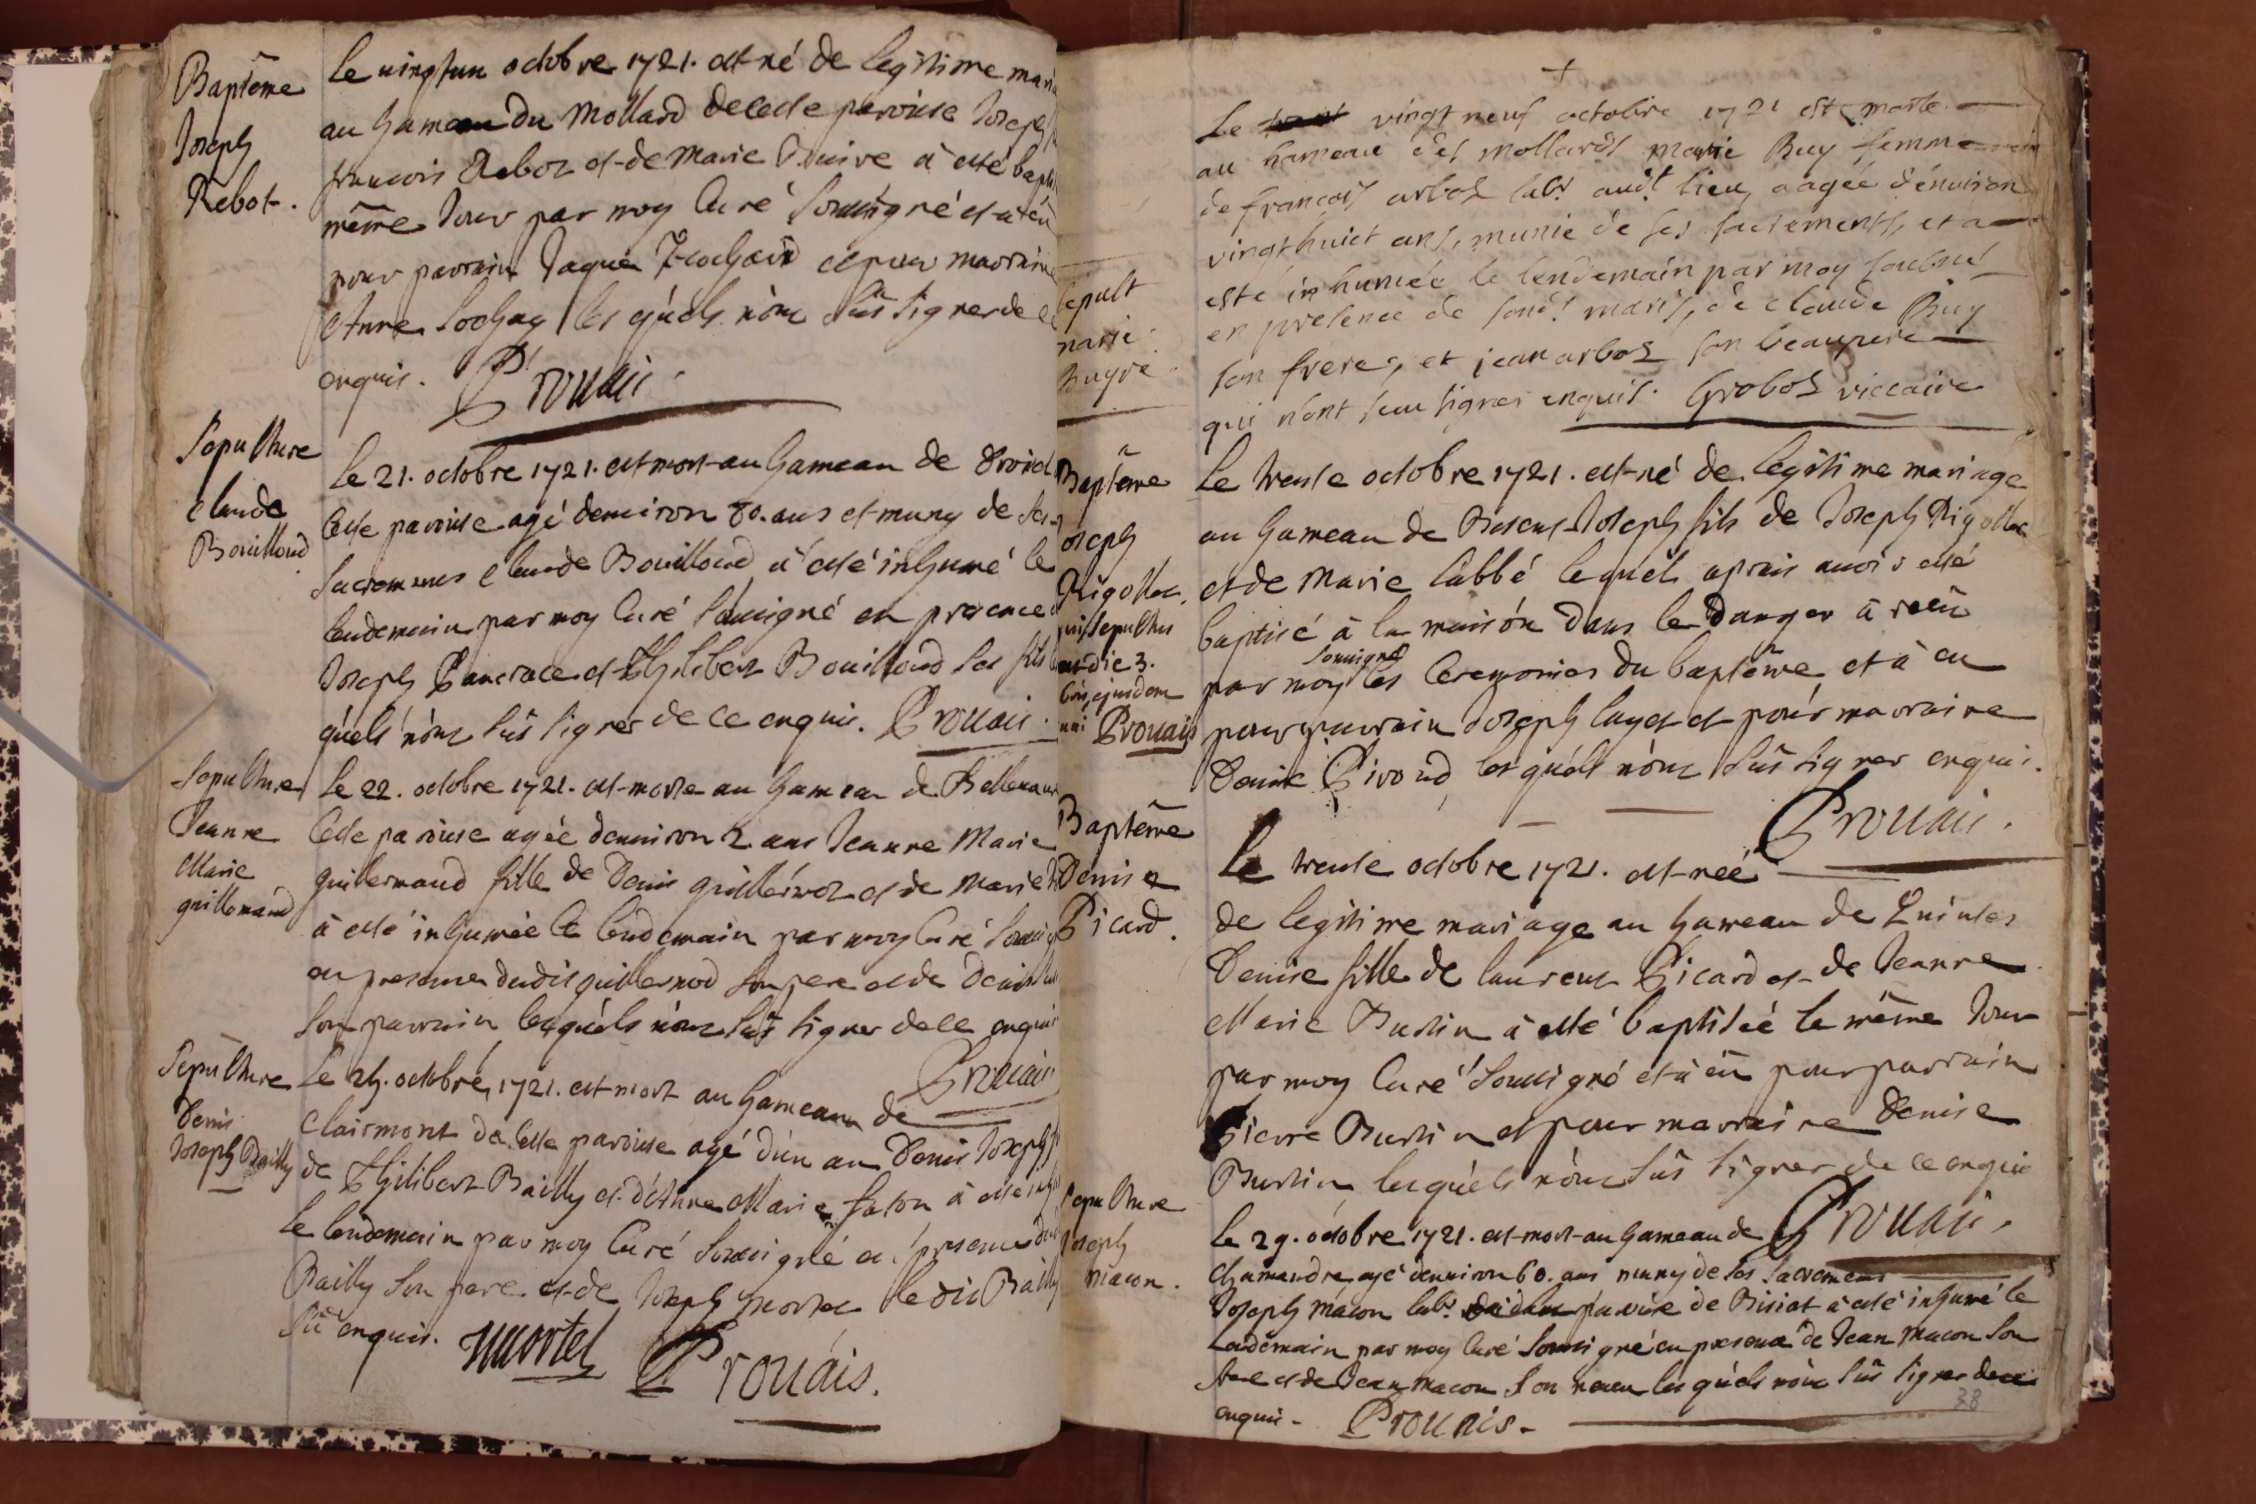 Baptême
Joseph
Rebot.
Le vingtun octobre 1721. est né de legitime maria
au hameau du Mollard de cette paroisse Joseph
francois Rebot et de Marie Buire à esté bapti
même jour par moy Curé soussigné et a eû
pour parrain Jaque Trochard et pour marraine
Anne Lochay les quels n'ont sûs signer de ce
enquis. Prouais
Sepulture
Claude
Bouilloud
Le 21. octobre 1721. est mort au hameau de
Cette paroisse agé denviron 80. ans et muny de ses
sacremens Claude Bouilloud à esté inhumé le
lendemain par moy Curé soussigné en presence
Joseph Pancrace et Philibert Bouilloud ses fils
quels n'ont sûs signer de ce enquis. Prouais.
Sepulture
Jeanne
Marie
guillemaud
Le 22. octobre 1721. est morte au hameau de
Cette paroisse agée denviron 2 ans Jeanne Marie
guillermaud fille de Denis guillermoz et de Marie
à esté inhumée le lendemain par moy Curé soussig
en presence dudit guillermod son pere et de Denis
son parrain lesquels n'ont sûs signer de ce enquis
Prouais
Sepulture
Denis
Joseph Bailly
Le 24. octobre 1721. est mort au hameau de
Clairmont de cette paroisse agé d'un an Denis Joseph
de Philibert Bailly et d'Anne Marie à esté inh
le lendemain par moy Curé soussigné en presence du
Bailly son pere et de Joseph mortel le dit Bailly
sû enquis. Mortel Prouais.
Sepult
marie
buyre
Le vingt neuf octobre 1721 est morte
au hameau des mollards marie Buy femme
de francois arboz labr audt lieu, aagée d'environ
vingt huict ans, munie de ses sacrements, et a
esté inhumée le lendemain par moy soubsné
en presence de sond.t marit, de claude Buy
son frere, et jean arboz son beaupere
qui n'ont sceu signer enquis. Groboz viccaire
Baptême
oseph
Rigollet.
sepultus
die 3.
ejusdem
Prouais
Le trente octobre 1721. est né de legitime mariage
au hameau de Joseph fils de Joseph Rigollet
et de Marie labbé lequel aprais avoir esté
baptisé à la maison dans le danger à reçû
par moy soussigné les Ceremonies du baptême et à eu
pour parrain Joseph layet et pour marraine
Denise Pivoud lesquels n'ont sûs signer enquis.
Prouais.
Baptême
Denise
Picard.
Le trente octobre 1721. est née
de legitime mariage au hameau de
Denise fille de laurent Picard et de Jeanne
Marie Burtin à esté baptisée le même jour
par moy Curé soussigné et à eû pour parrain
Pierre Burtin et pour marraine Denise
Burtin lesquels n'ont sûs signer de ce enquis
Prouais.
Sepulture
Joseph
macon.
Le 29. octobre 1721. est mort au hameau de
Chamandre agé denviron 60. ans muny de ses sacremens
Joseph macon labr. paroisse de Bisiat à esté inhumé le
Lendemain par moy Curé soussigné en presence de Jean macon son
frere et de Jean macon son neveu lesquels n'ont sûs signer de ce
enquis. Prouais.
38